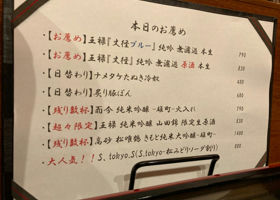 本日のお薦め
・【お薦め】王禄『丈径ブルー』純吟 無濾過 本生 790
・【お薦め】王禄『丈径』純吟 無濾過 原酒 本生 830
・【日替わり】ナメタケたぬき冷奴 480
・【日替わり】炙り豚ぽん 680
・【残り数杯】而今 純米吟醸 -雄町- 火入れ 790
・【超々限定】王禄 純米吟醸 山田錦 限定生原酒
・【残り数杯】高砂 松喰鶴 きもと純米大吟醸 -雄町- 1400
・大人気！！S. tokyo.S(S.tokyo-松みどりソーダ割り) 880